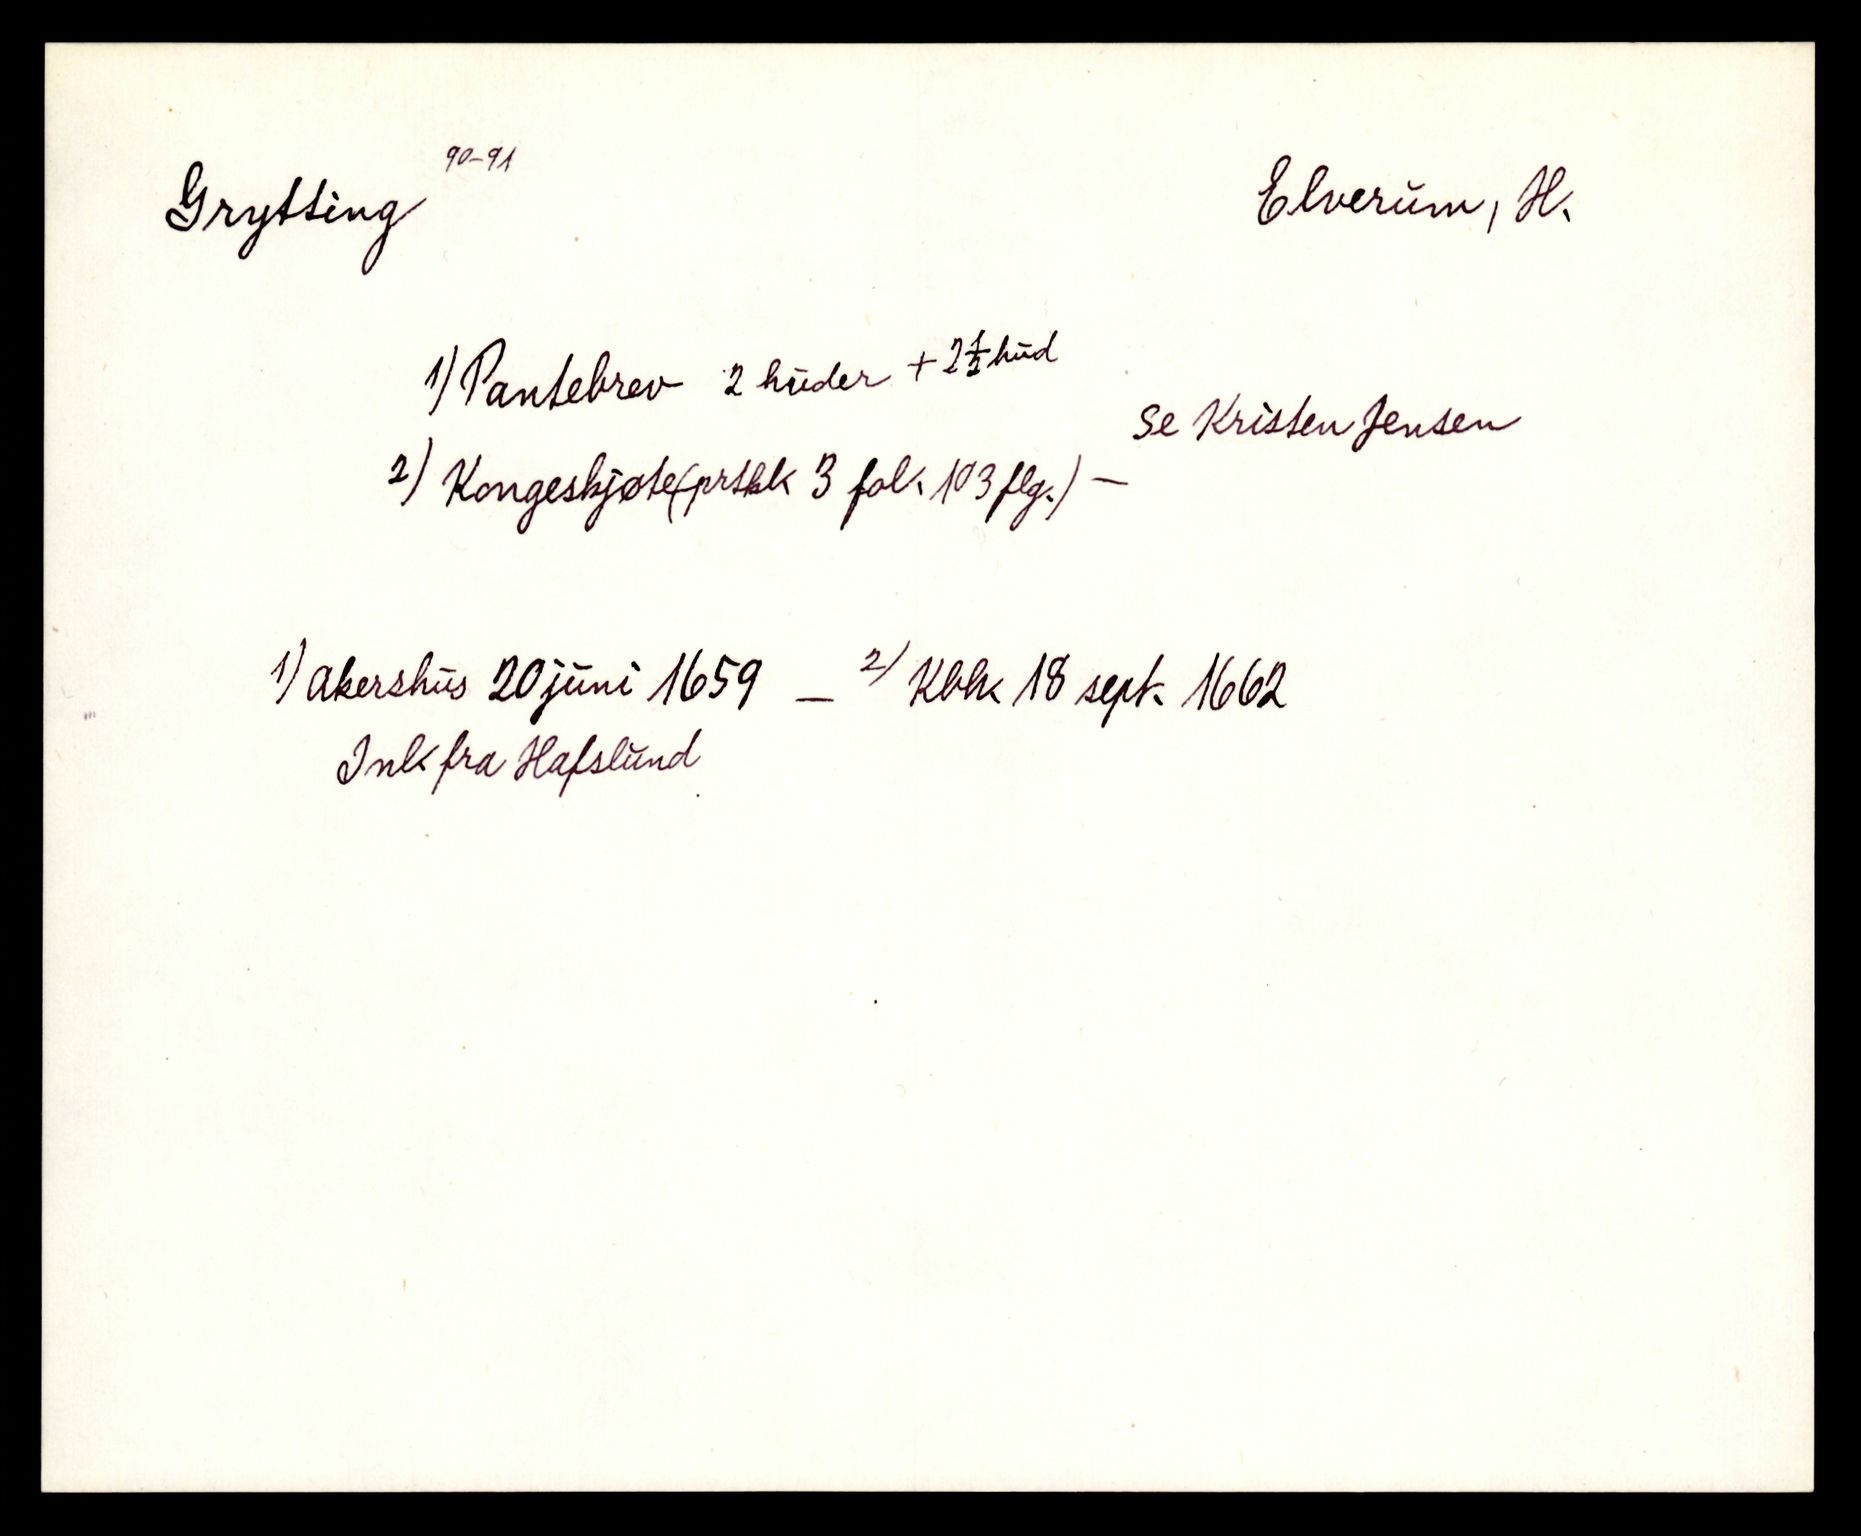 Grytting 90-91 Elverum, H.
1) Pantebrev 2 huder + 2 1/2 hud
Se Kristen Jensen
2) Kongeskjøte (prtbk 3 fol. 103 flg.) —
1) Akershus 20 juni 1659 — 2) Kbh 18 sept. 1662
Ink fra Hafslund